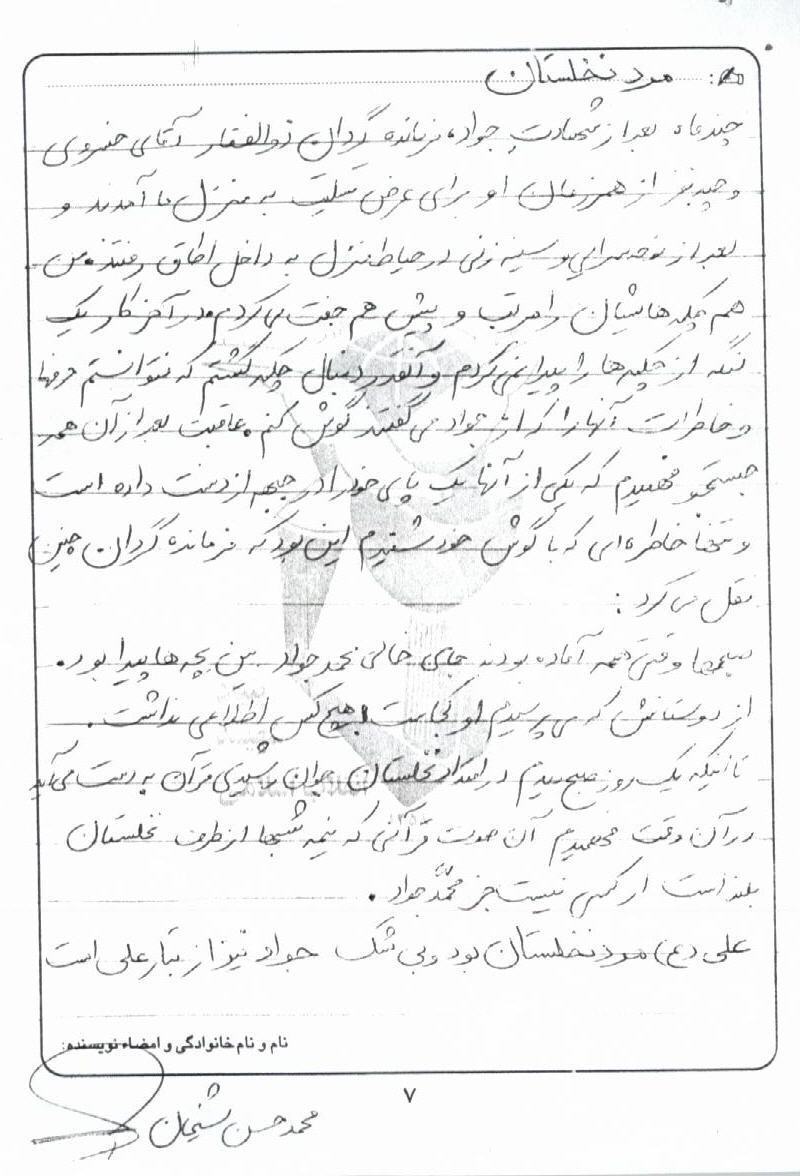 مرد نخلستان
چند ماه بعد از شهادت جواد، فرمانده گردان ذوالفقار آقای خسروی
و چند نفر از همرزمان او برای عرض تسلیت به منزل ما آمدند و
بعد از نوحه سرایی و سینه زنی در حیاط منزل به داخل اطاق رفتند، من
هم چکمه هایشان را مرتب و پیش هم جفت می کردم، در آخر کار یک
لنگه از چکمه ها را پیدا نمی کردم و آنقدر دنبال چکمه گشتم که نتوانستم حرفها
و خاطرات آنها را که از جواد می گفتند گوش کنم. عاقبت بعد از آن همه
جستجو فهمیدم که یکی از آنها یک پای خود را در جبهه از دست داده است
و تنها خاطره ای که با گوش خود شنیدم این بود که فرمانده گردان چنین
نقل می کرد:
صبحها وقتی همه آماده بودند جای خالی محمد جواد بین بچه ها پیدا بود.
از دوستانش که می پرسیدم او کجاست هیچ کس اطلاعی نداشت.
تا اینکه یک روز صبح دیدم در امتداد نخلستان جوان رشیدی قرآن به دست می آید
در آن وقت فهمیدم آن صوت قرآنی که نیمه شبها از طرف نخلستان
بلند است از کسی نیست جز محمّد جواد.
علی (ع) مرد نخلستان بود و بی شک جواد نیز از تبار علی است
نام و نام خانوادگی و امضاء نویسنده:
۷
محمد حسن